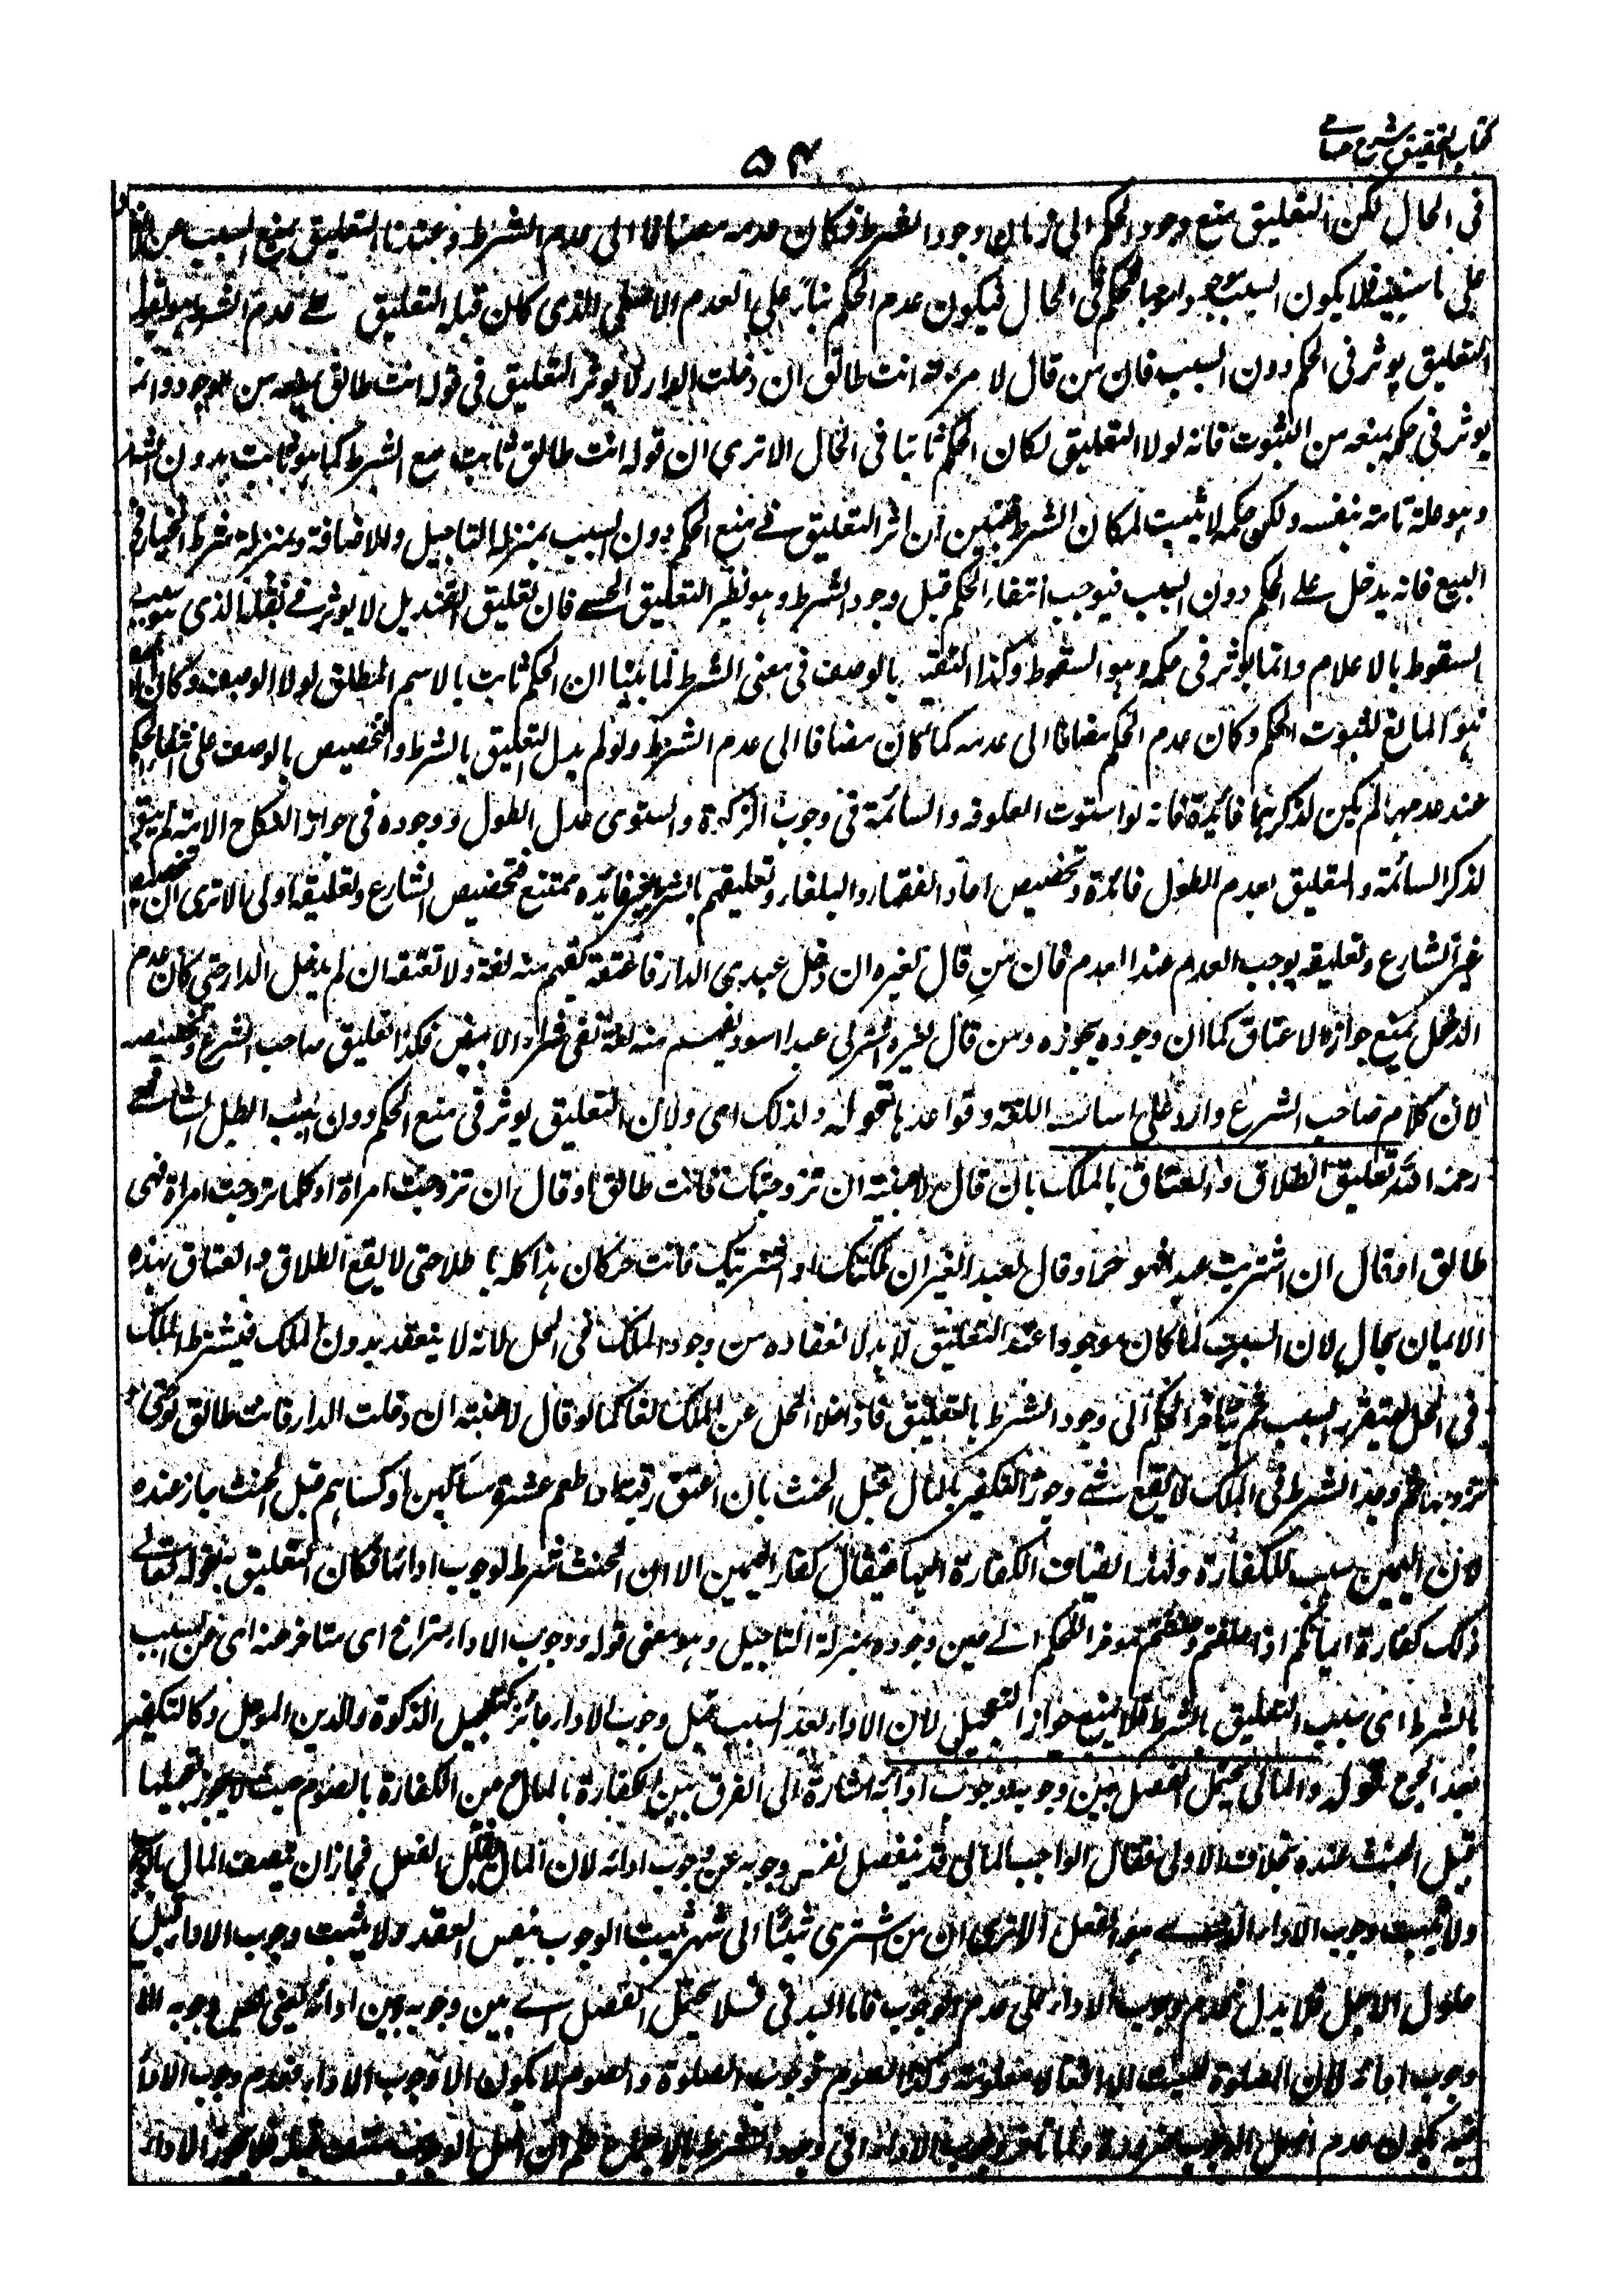 كتاب التحقيق شرح حسامى
٥٢
فى الحال لكن التعليق منع وجود الحكم الى زمان وجود الشرط فكان عدمه مضافا الى عدم الشرط وعندنا التعليق يمنع السبب عن
على فلا يكون السبب موجودا فى الحال فيكون عدم الحكم بناء على العدم الاصلى الذى كان قبل التعليق على عدم الشرط هو يقول
التعليق يوثر فى الحكم دون السبب فان من قال لامرءته انت طالق ان دخلت الدار لا يوثر التعليق فى قوله انت طالق من الوجود وانما
يوثر فى حكمه بمنعه من الثبوت فانه لولا التعليق لكان الحكم ثابتا فى الحال الا ترى ان قوله انت طالق ثابت مع الشرط كما هو ثابت بدون الشرط
وهو علة تامة بنفسه ولكن حكمه لا يثبت لمكان الشرط فتبين ان اثر التعليق فے منع الحكم دون السبب بمنزلة التاجيل والاضافة وبمنزلة شرط الخيار فى
البيع فانه يدخل علے الحكم دون السبب فيوجب انتفاء الحكم قبل وجود الشرط وهو نظير التعليق الحسے فان تعليق القنديل لا يوثر فے ثقله الذى هو سبب
السقوط بالاعلام وانما يوثر فى حكمه وهو السقوط وكذا التقييد بالوصف فى معنى الشرط لما بينا ان الحكم ثابت بالاسم المطلق لولا الوصف وكان
هو المانع لثبوت الحكم وكان عدم الحكم مضافا الى عدمه كما كان مضافا الى عدم الشرط ولو لم يدل التعليق بالشرط والتخصيص بالوصف على انتفاء الحكم
عند عدمهما لم يكن لذكرهما فائدة فانه لو استوت العلوفة والسائمة فى وجوب الزكوة واستوى عدل الطول ووجوده فى جواز النكاح الامة لم يبق
لذكر السائمة والتعليق بعدم الطول فائدة وتخصيص آحاد الفقهاء والبلغاء وتعليقهم بالشرط لغير فائدة ممتنع فتخصيص الشارع وتعليقه اولى الا ترى ان تخصيص
غير الشارع وتعليقه يوجب العدم عند العدم فان من قال لغيره ان دخل عبدى الدار فاعتقه يفهم منه لغة ولا تعتقه ان لم يدخل الدار حتى كان عدم
الدخل يمنع جواز الاعتاق كما ان وجوده يجوزه ومن قال لغيره اشتر لى عبدا اسود يفهم منه لغة نفى شراء الابيض فكذا تعليق صاحب الشرع وتخصيصه
لان كلام صاحب الشرع وارد على اساليب اللغة وقواعدها قوله ولذلك اى ولان التعليق يوثر فى منع الحكم دون السبب ابطل الشافعے
رحمه الله تعليق الطلاق والعتاق بالملك بان قال لاجنبية ان تزوجتك فانت طالق او قال ان تزوجت امراة او كلما تزوجت امراة فهى
طالق او قال ان اشتريت عبدا فهو حر او قال لعبد الغير ان ملكتك او اشتريتك فانت حر كان هذا كله باطلا حتى لا يقع الطلاق والعتاق بهذه
الايمان بحال لان السبب لما كان موجودا عند التعليق لا بد لانعقاده من وجود الملك فى المحل لانه لا ينعقد بدون الملك فيشترط الملك
فى المحل ليتقرر السبب ثم يتاخر الحكم الى وجود الشرط بالتعليق فاذا خلا المحل عن الملك لغا كما لو قال لاجنبية ان دخلت الدار فانت طالق
تزوجها ثم وجد الشرط فى الملك لا يقع شئے وجوز التكفير بالمال قبل الحنث بان اعتق رقبة او اطعم عشرة مساكين او كساهم قبل الحنث جاز عنده
لان اليمين سبب للكفارة ولهذا يضاف الكفارة اليها فيقال كفارة اليمين الا ان الحنث شرط لوجوب ادائها فكان التعليق بقوله تعالے
ذلك كفارة ايمانكم اذا حلفتم وحنثتم موخر الحكم الے حين وجوده بمنزلة التاجيل وهو معنى قوله ووجوب الاداء متراخ اى متاخر عنه اى عن السبب
بالشرط اى بسبب التعليق بالشرط فلا يمنع جواز التعجيل لان الاداء بعد السبب قبل وجوب الاداء جائز كتعجيل الزكوة والدين الموجل وكالتكفير
بعد الجرح قوله والمالى يحتمل الفصل بين وجوبه ووجوب ادائه اشارة الى الفرق بين الكفارة بالمال من الكفارة بالصوم حيث لا يجوز تعجيلها
قبل الحنث عنده بخلاف الاولى فقال الواجب المالى قد ينفصل نفس وجوبه عن وجوب ادائه لان المال قبل الفعل فجاز ان يتصف المال
ولا يثبت وجوب الاداء الذے هو الفعل الا ترى ان من اشترى شيئا الى شهر ثبت الوجوب بنفس العقد ولا يثبت وجوب الاداء قبل
حلول الاجل فلا يدل عدم وجوب الاداء على عدم الوجوب فاما البدنى فلا يحتمل الفصل اے بين وجوبه وبين ادائه يعنى وجوبه
وجوب ادائه لان الصلوة افعال معلومة وكذا الصوم فوجوب الصلوة والصوم لا يكون الا وجوب الاداء فعدم وجوب الاداء
فيه يكون عدم اصل الوجوب ضرورة ولما تاخر وجوب الاداء الى وجود الشرط بالاجماع علم ان اصل الوجوب منتف قبله فلا يجوز الاداء